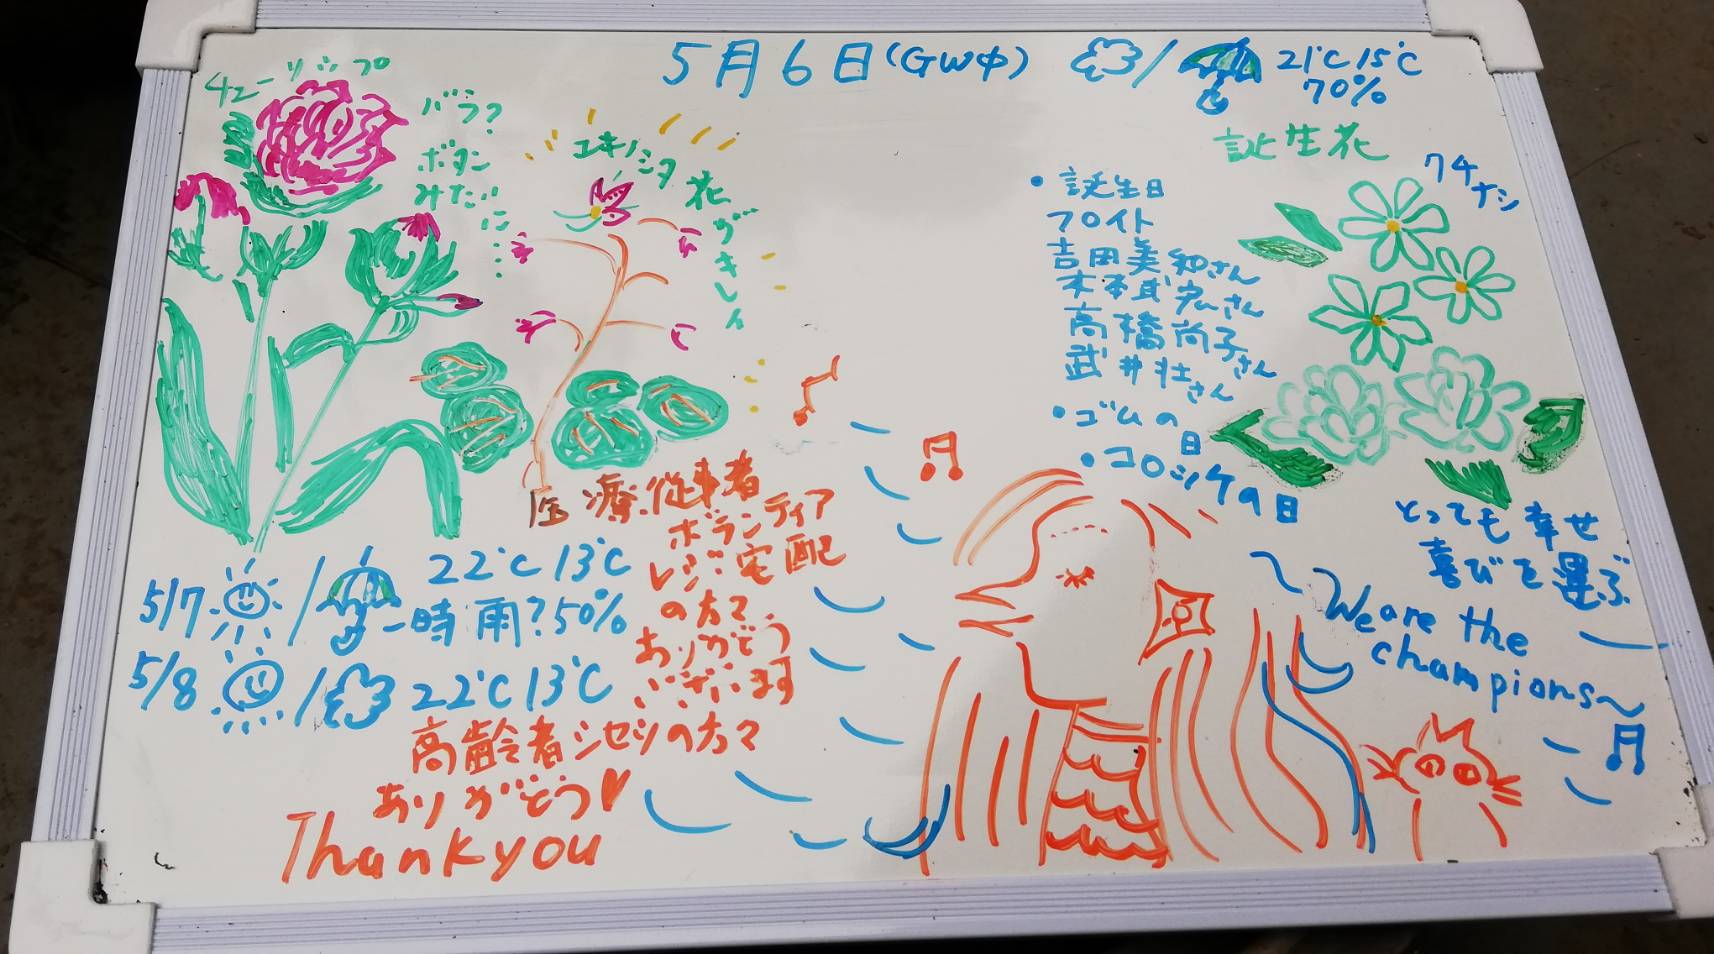 5月6日(GW中)
21℃ 15℃
70%
チューリップ
バラ?
ボタン
みたいに……
ユキノシタ
花がキレイ
誕生花
クチナシ
・誕生日
フロイト
吉田美和さん
木本武宏さん
高橋尚子さん
武井壮さん
・ゴムの日
・コロッケの日
とっても幸せ
喜びを運ぶ
We are the
champions〜
医療従事者
ボランティア
レジ 宅配
の方々
ありがとう
ございます
5/7 / 22℃ 13℃
一時雨?50%
5/8 / 22℃ 13℃
高齢者シセツの方々
ありがとう
Thank you